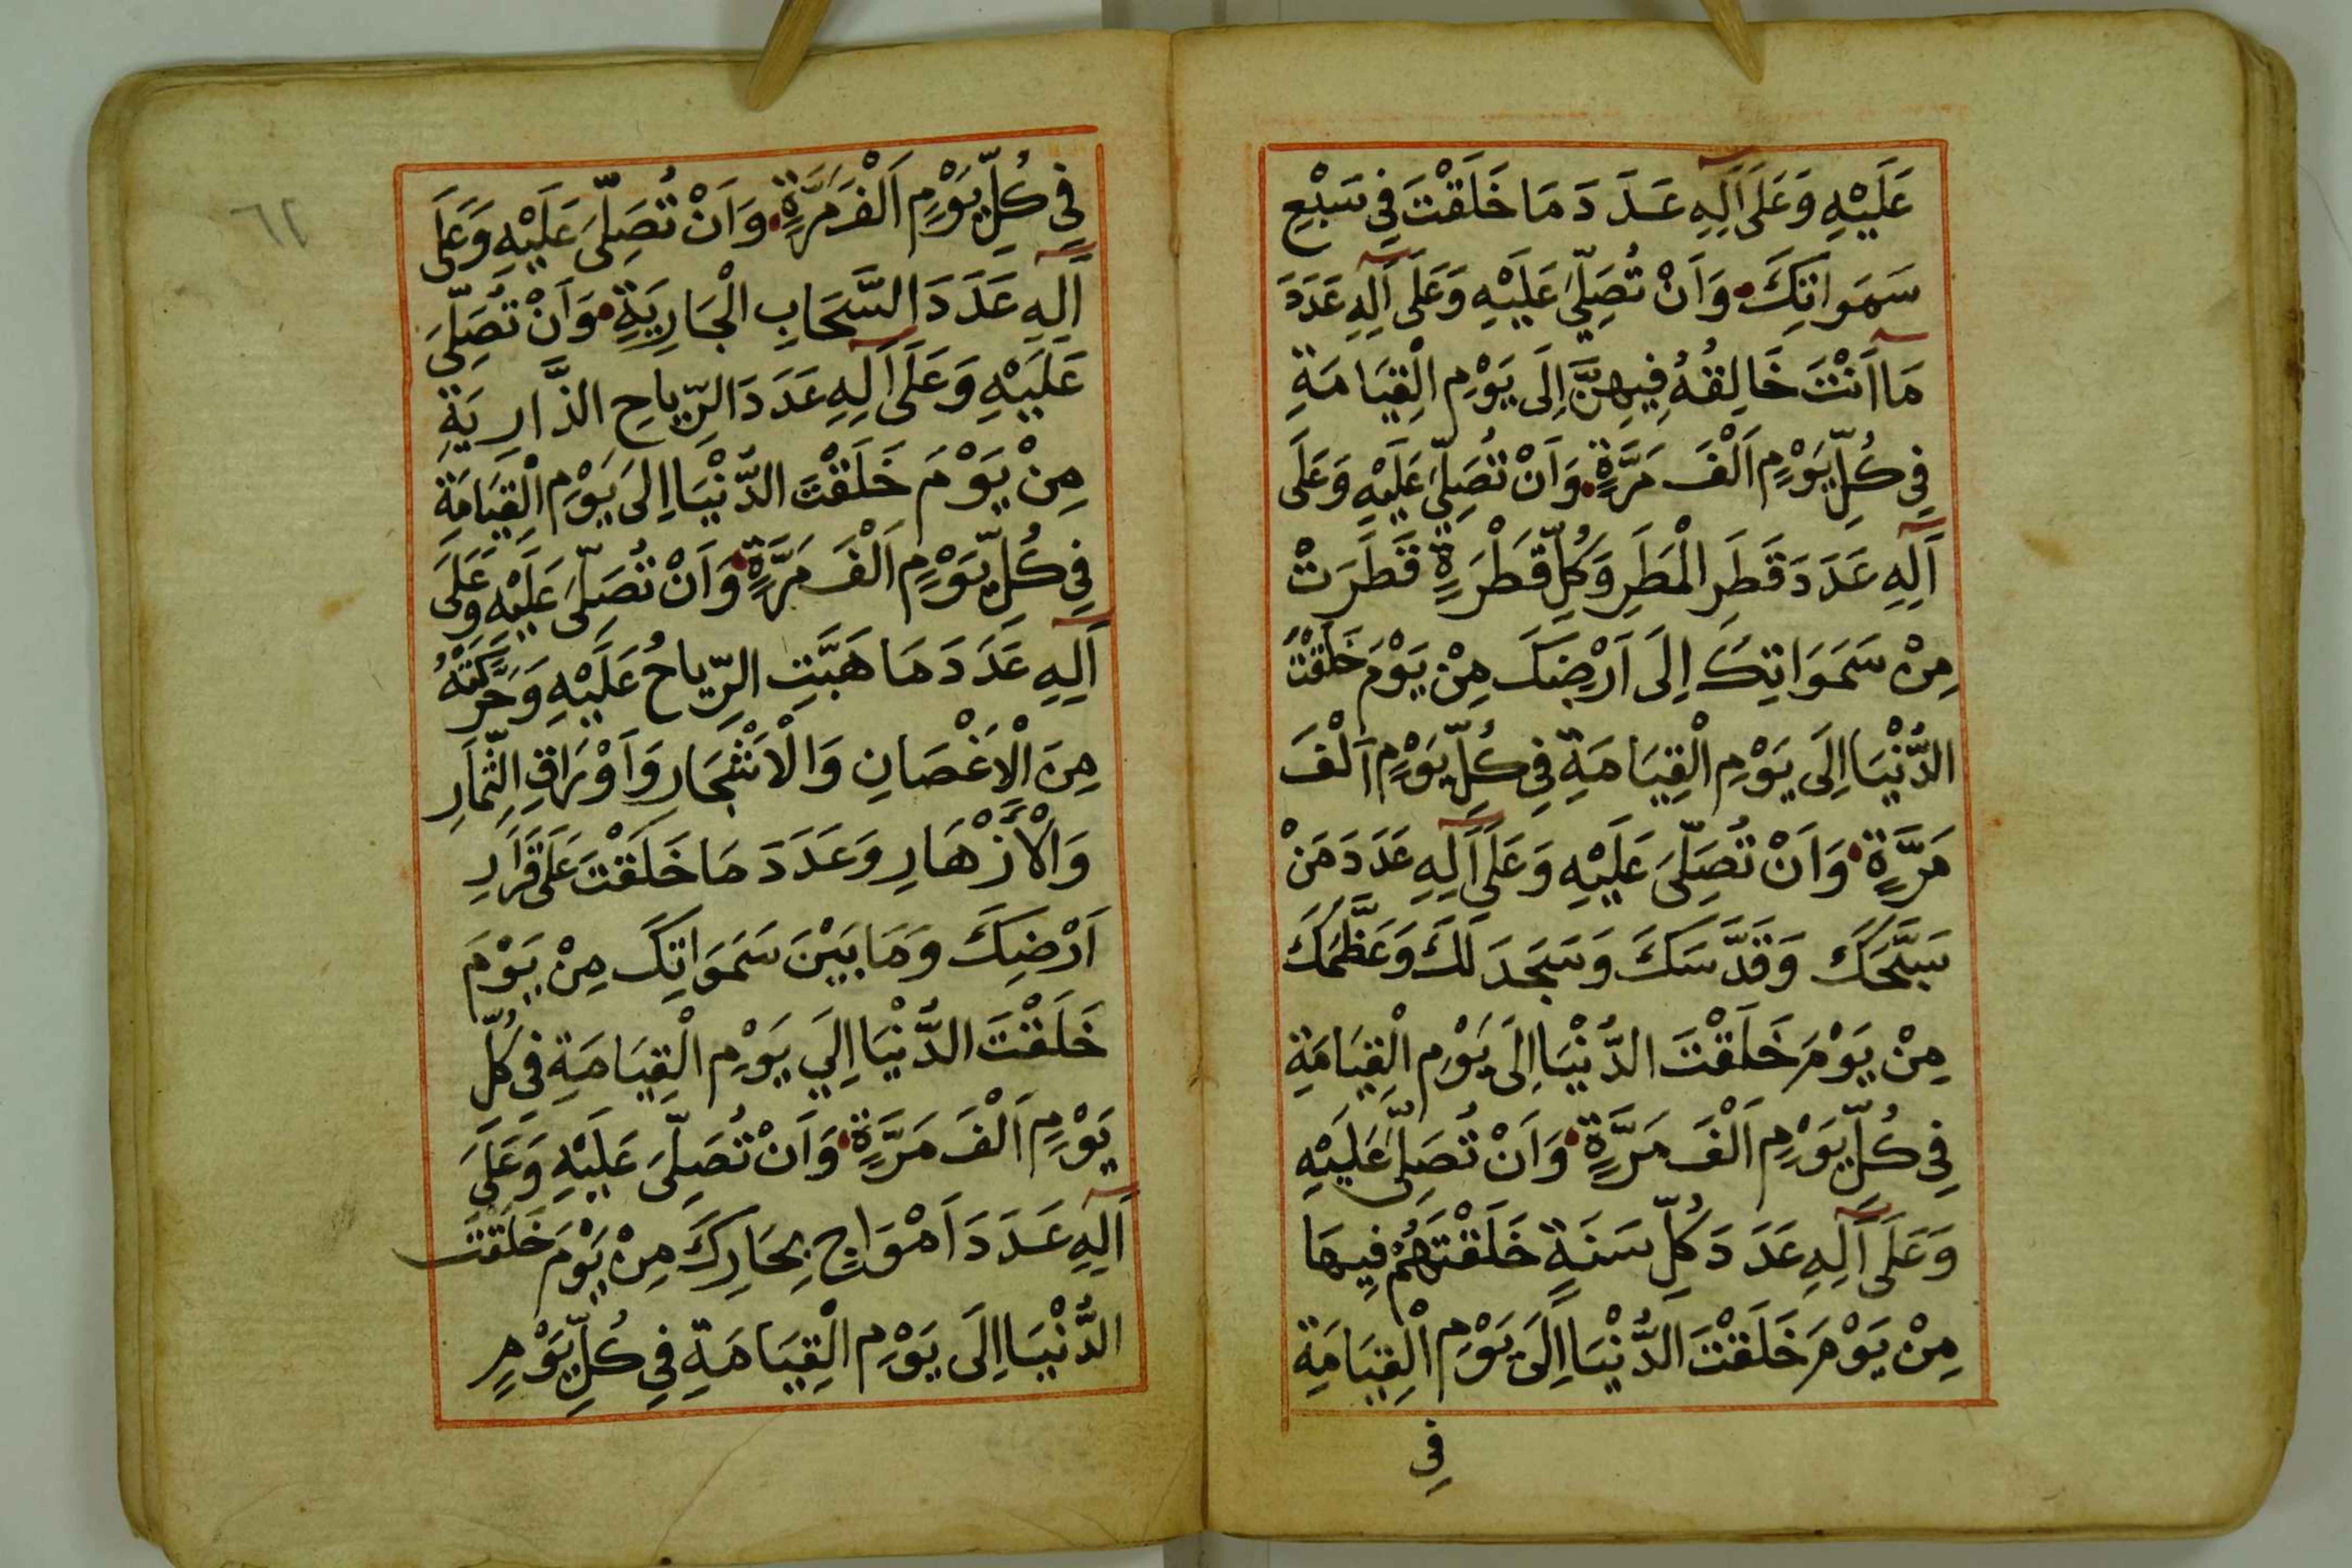 عَلَيْهِ وَعَلَى آلِهِ عَدَدَ مَا خَلَقْتَ فِي سَبْعِ
سَمَوَاتِكَ وَاَنْ تُصَلِّيَ عَلَيْهِ وَعَلَى آلِهِ عَدَدَ
مَا اَنْتَ خَالِقُهُ فِيهِنَّ اِلَى يَوْمِ الْقِيَامَةِ
فِي كُلِّ يَوْمٍ اَلْفَ مَرَّةٍ وَاَنْ تُصَلِّيَ عَلَيْهِ وَعَلَى
آلِهِ عَدَدَ قَطَرِ الْمَطَرِ وَكُلِّ قَطْرَةٍ قَطَرَتْ
مِنْ سَمَوَاتِكَ اِلَى اَرْضِكَ مِنْ يَوْمَ خَلَقْتَ
الدُّنْيَا اِلَى يَوْمِ الْقِيَامَةِ فِي كُلِّ يَوْمٍ اَلْفَ
مَرَّةٍ وَاَنْ تُصَلِّيَ عَلَيْهِ وَعَلَى آلِهِ عَدَدَ مَنْ
سَبَّحَكَ وَقَدَّسَكَ وَسَجَدَ لَكَ وَعَظَّمَكَ
مِنْ يَوْمَ خَلَقْتَ الدُّنْيَا اِلَى يَوْمِ الْقِيَامَةِ
فِي كُلِّ يَوْمٍ اَلْفَ مَرَّةٍ وَاَنْ تُصَلِّيَ عَلَيْهِ
وَعَلَى آلِهِ عَدَدَ كُلِّ سَنَةٍ خَلَقْتَهُمْ فِيهَا
مِنْ يَوْمَ خَلَقْتَ الدُّنْيَا اِلَى يَوْمِ الْقِيَامَةِ
فِي
٦٢
فِي كُلِّ يَوْمٍ اَلْفَ مَرَّةٍ وَاَنْ تُصَلِّيَ عَلَيْهِ وَعَلَى
آلِهِ عَدَدَ السَّحَابِ الْجَارِيَةِ وَاَنْ تُصَلِّيَ
عَلَيْهِ وَعَلَى آلِهِ عَدَدَ الرِّيَاحِ الذَّارِيَةِ
مِنْ يَوْمَ خَلَقْتَ الدُّنْيَا اِلَى يَوْمِ الْقِيَامَةِ
فِي كُلِّ يَوْمٍ اَلْفَ مَرَّةٍ وَاَنْ تُصَلِّيَ عَلَيْهِ وَعَلَى
آلِهِ عَدَدَ مَا هَبَّتِ الرِّيَاحُ عَلَيْهِ وَحَرَّكَتْهُ
مِنَ الْاَغْصَانِ وَالْاَشْجَارِ وَاَوْرَاقِ الثِّمَارِ
وَالْاَزْهَارِ وَعَدَدَ مَا خَلَقْتَ عَلَى قَرَارِ
اَرْضِكَ وَمَا بَيْنَ سَمَوَاتِكَ مِنْ يَوْمَ
خَلَقْتَ الدُّنْيَا اِلَي يَوْمِ الْقِيَامَةِ فِي كُلِّ
يَوْمٍ اَلْفَ مَرَّةٍ وَاَنْ تُصَلِّيَ عَلَيْهِ وَعَلَى
آلِهِ عَدَدَ اَمْوَاجِ بِحَارِكَ مِنْ يَوْمَ خَلَقْتَ
الدُّنْيَا اِلَى يَوْمِ الْقِيَامَةِ فِي كُلِّ يَوْمٍ